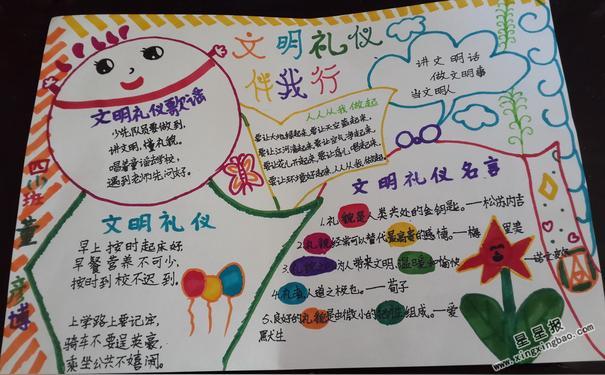 文明礼仪
伴我行
讲文明话
做文明事
当文明人
文明礼仪歌谣
少先队员要做到,
讲文明,懂礼貌。
唱着童谣去学校,
遇到老师先问好。
人人从我做起
要让大地绿起来,要让天空蓝起来,
要让江河清起来,要让空气净起来,
要让花儿开起来,要让鸟儿唱起来,
要让环境好起来,人人从我做起。
四(3)班
董彦博
文明礼仪
早上按时起床好
早餐营养不可少,
按时到校不迟到.
上学路上要记牢,
骑车不要逞英豪,
乘坐公共不嬉闹。
文明礼仪名言
1.礼貌是人类共处的金钥匙。——松苏内吉
2.礼貌经常可以替代最高贵的感情。——梅里美
3.礼貌使人为带来文明、温暖和愉快
4.礼者,人道之极也。——荀子
5、良好的礼貌是由微小的牺牲组成。——爱
默生
星星报
www.xingxingbao.com